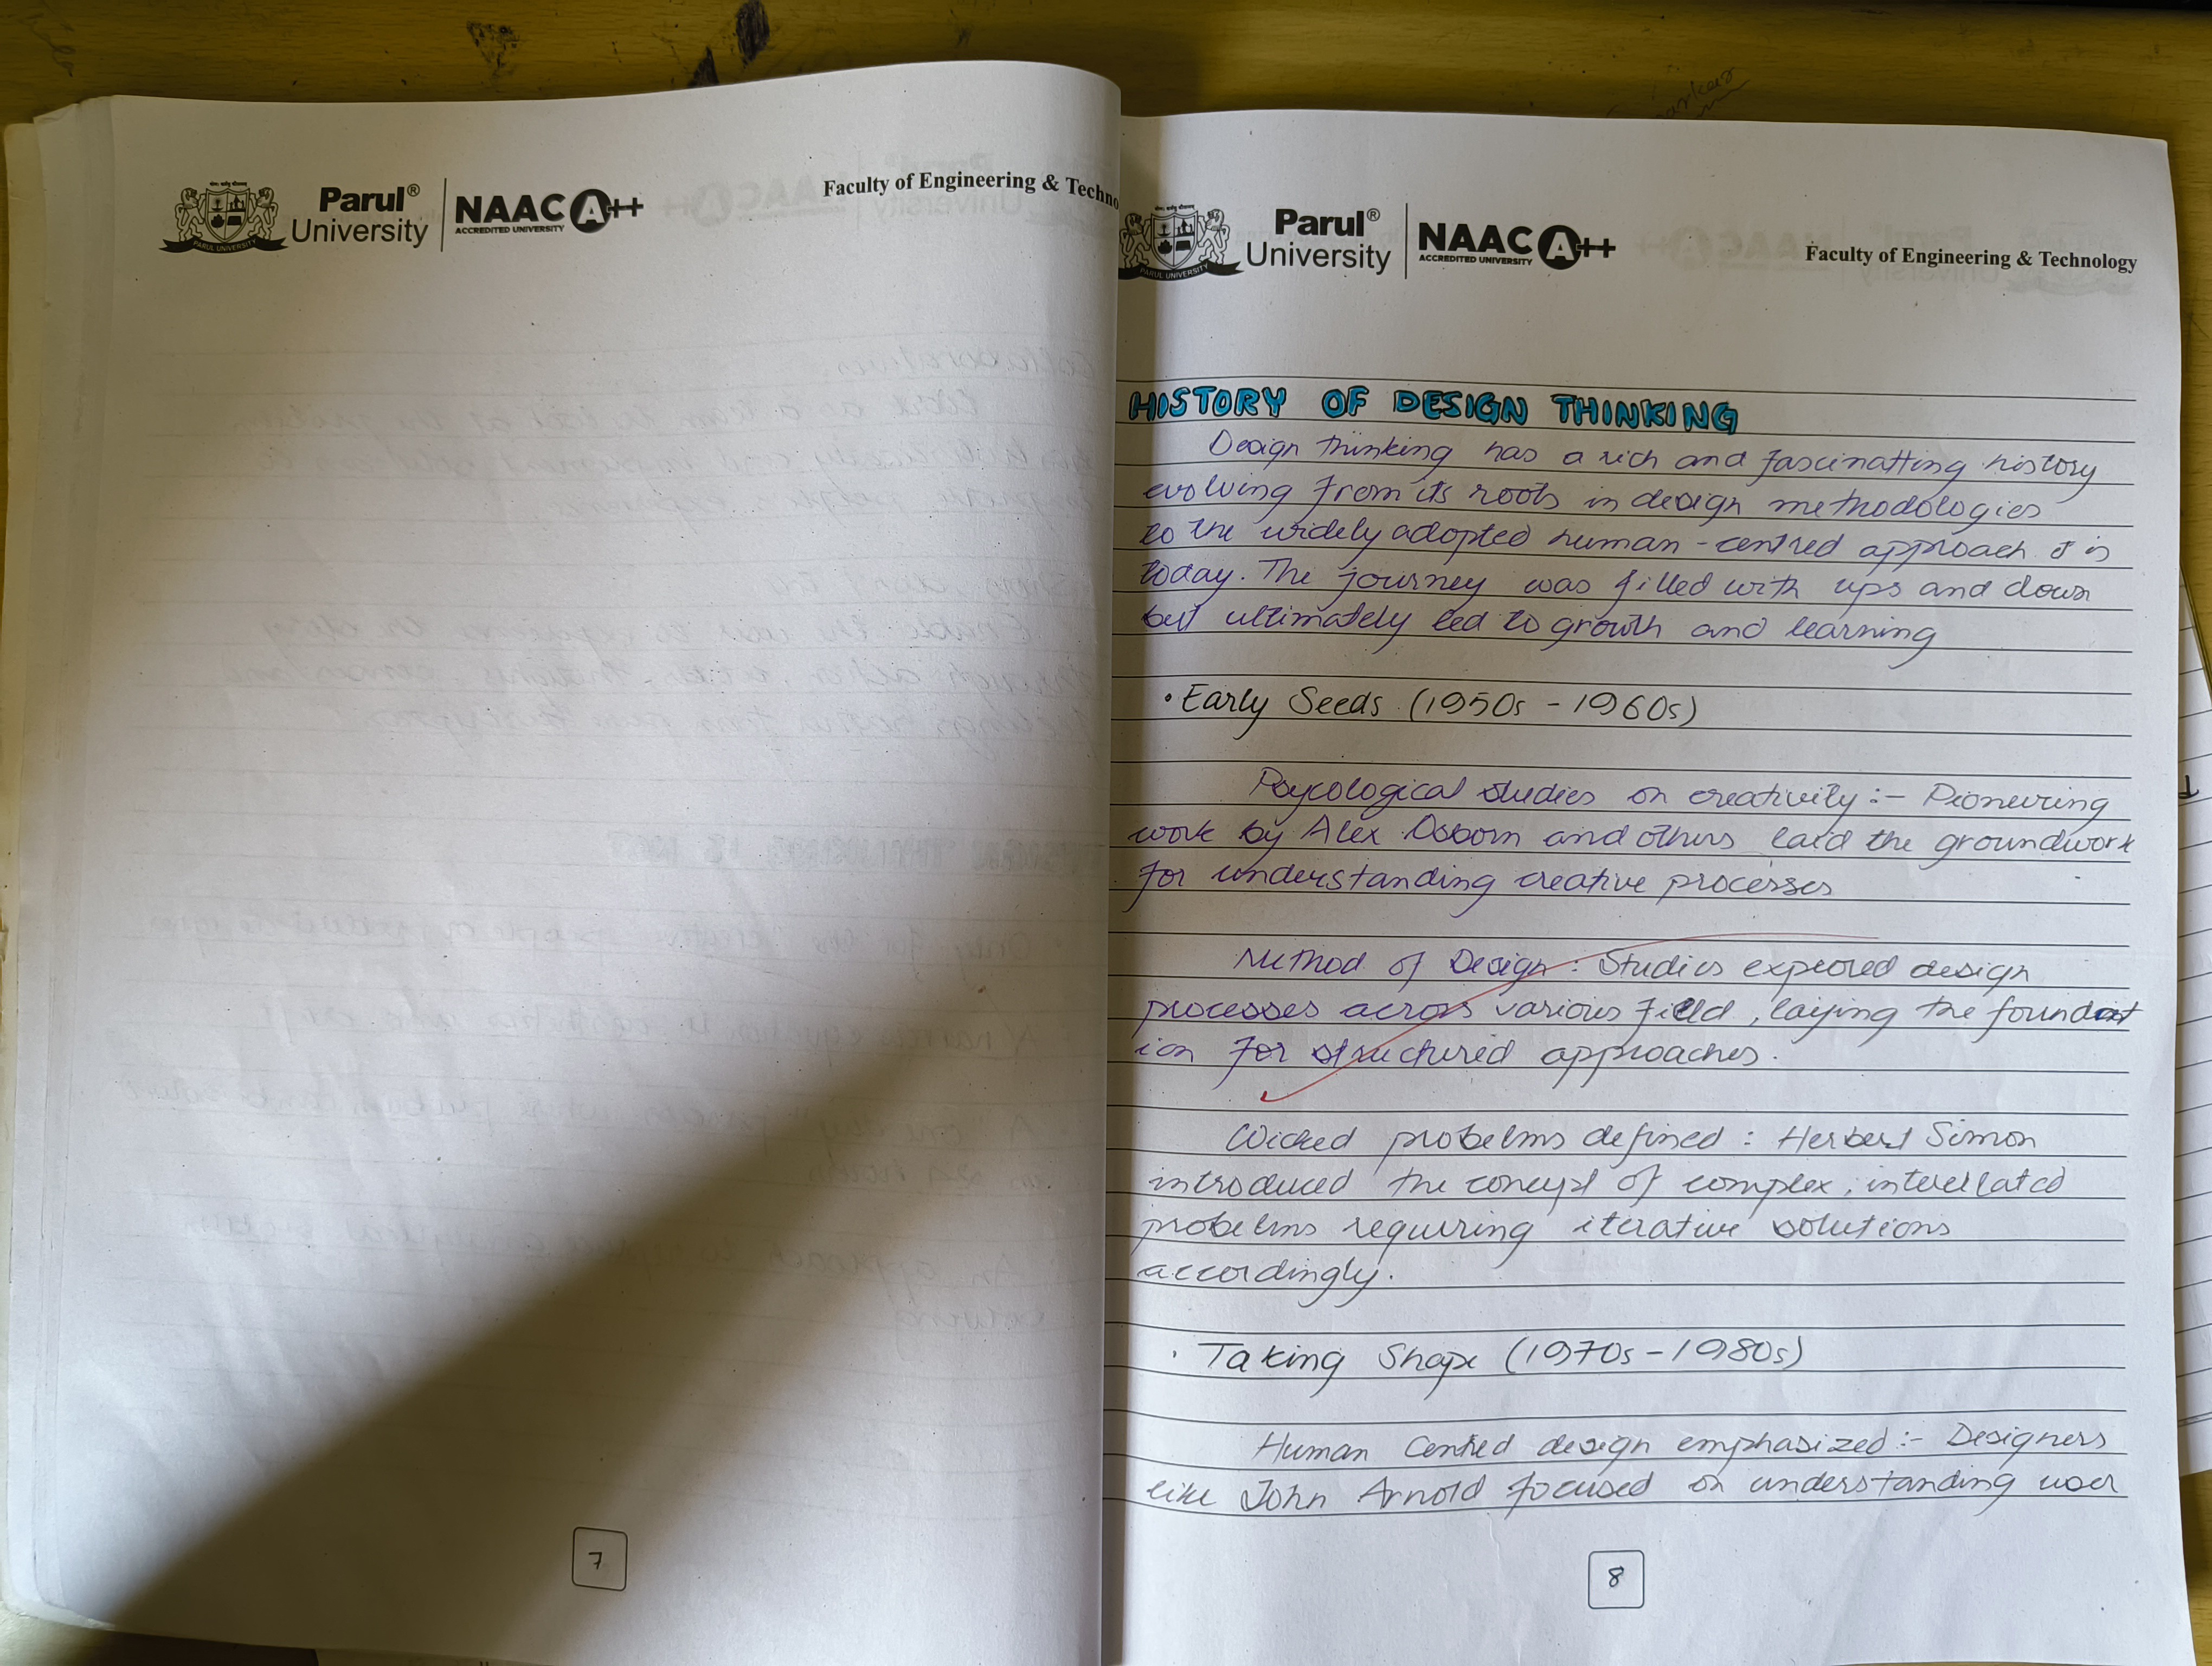 Parul®
University
NAAC A++
ACCREDITED UNIVERSITY
PARUL UNIVERSITY
Faculty of Engineering & Techno
7
Parul®
University
NAAC A++
ACCREDITED UNIVERSITY
PARUL UNIVERSITY
Faculty of Engineering & Technology
HISTORY OF DESIGN THINKING
Design thinking has a rich and fascinatting history
evolving from its roots in design methodologies
to the widely adopted human-centred approach it is
today. The journey was filled with ups and down
but ultimately led to growth and learning
• Early Seeds (1950s - 1960s)
Psycological studies on creativity :- Pioneering
work by Alex Osborn and others laid the groundwork
for understanding creative processes
Method of Design : Studies explored design
processes across various field, laying the foundat
ion for structured approaches.
Wicked probelms defined : Herbert Simon
introduced the concept of complex, interrlated
probelms requiring iterative solutions
accordingly.
• Taking Shape (1970s - 1980s)
Human Centred design emphasized :- Designers
like John Arnold focused on understanding user
8